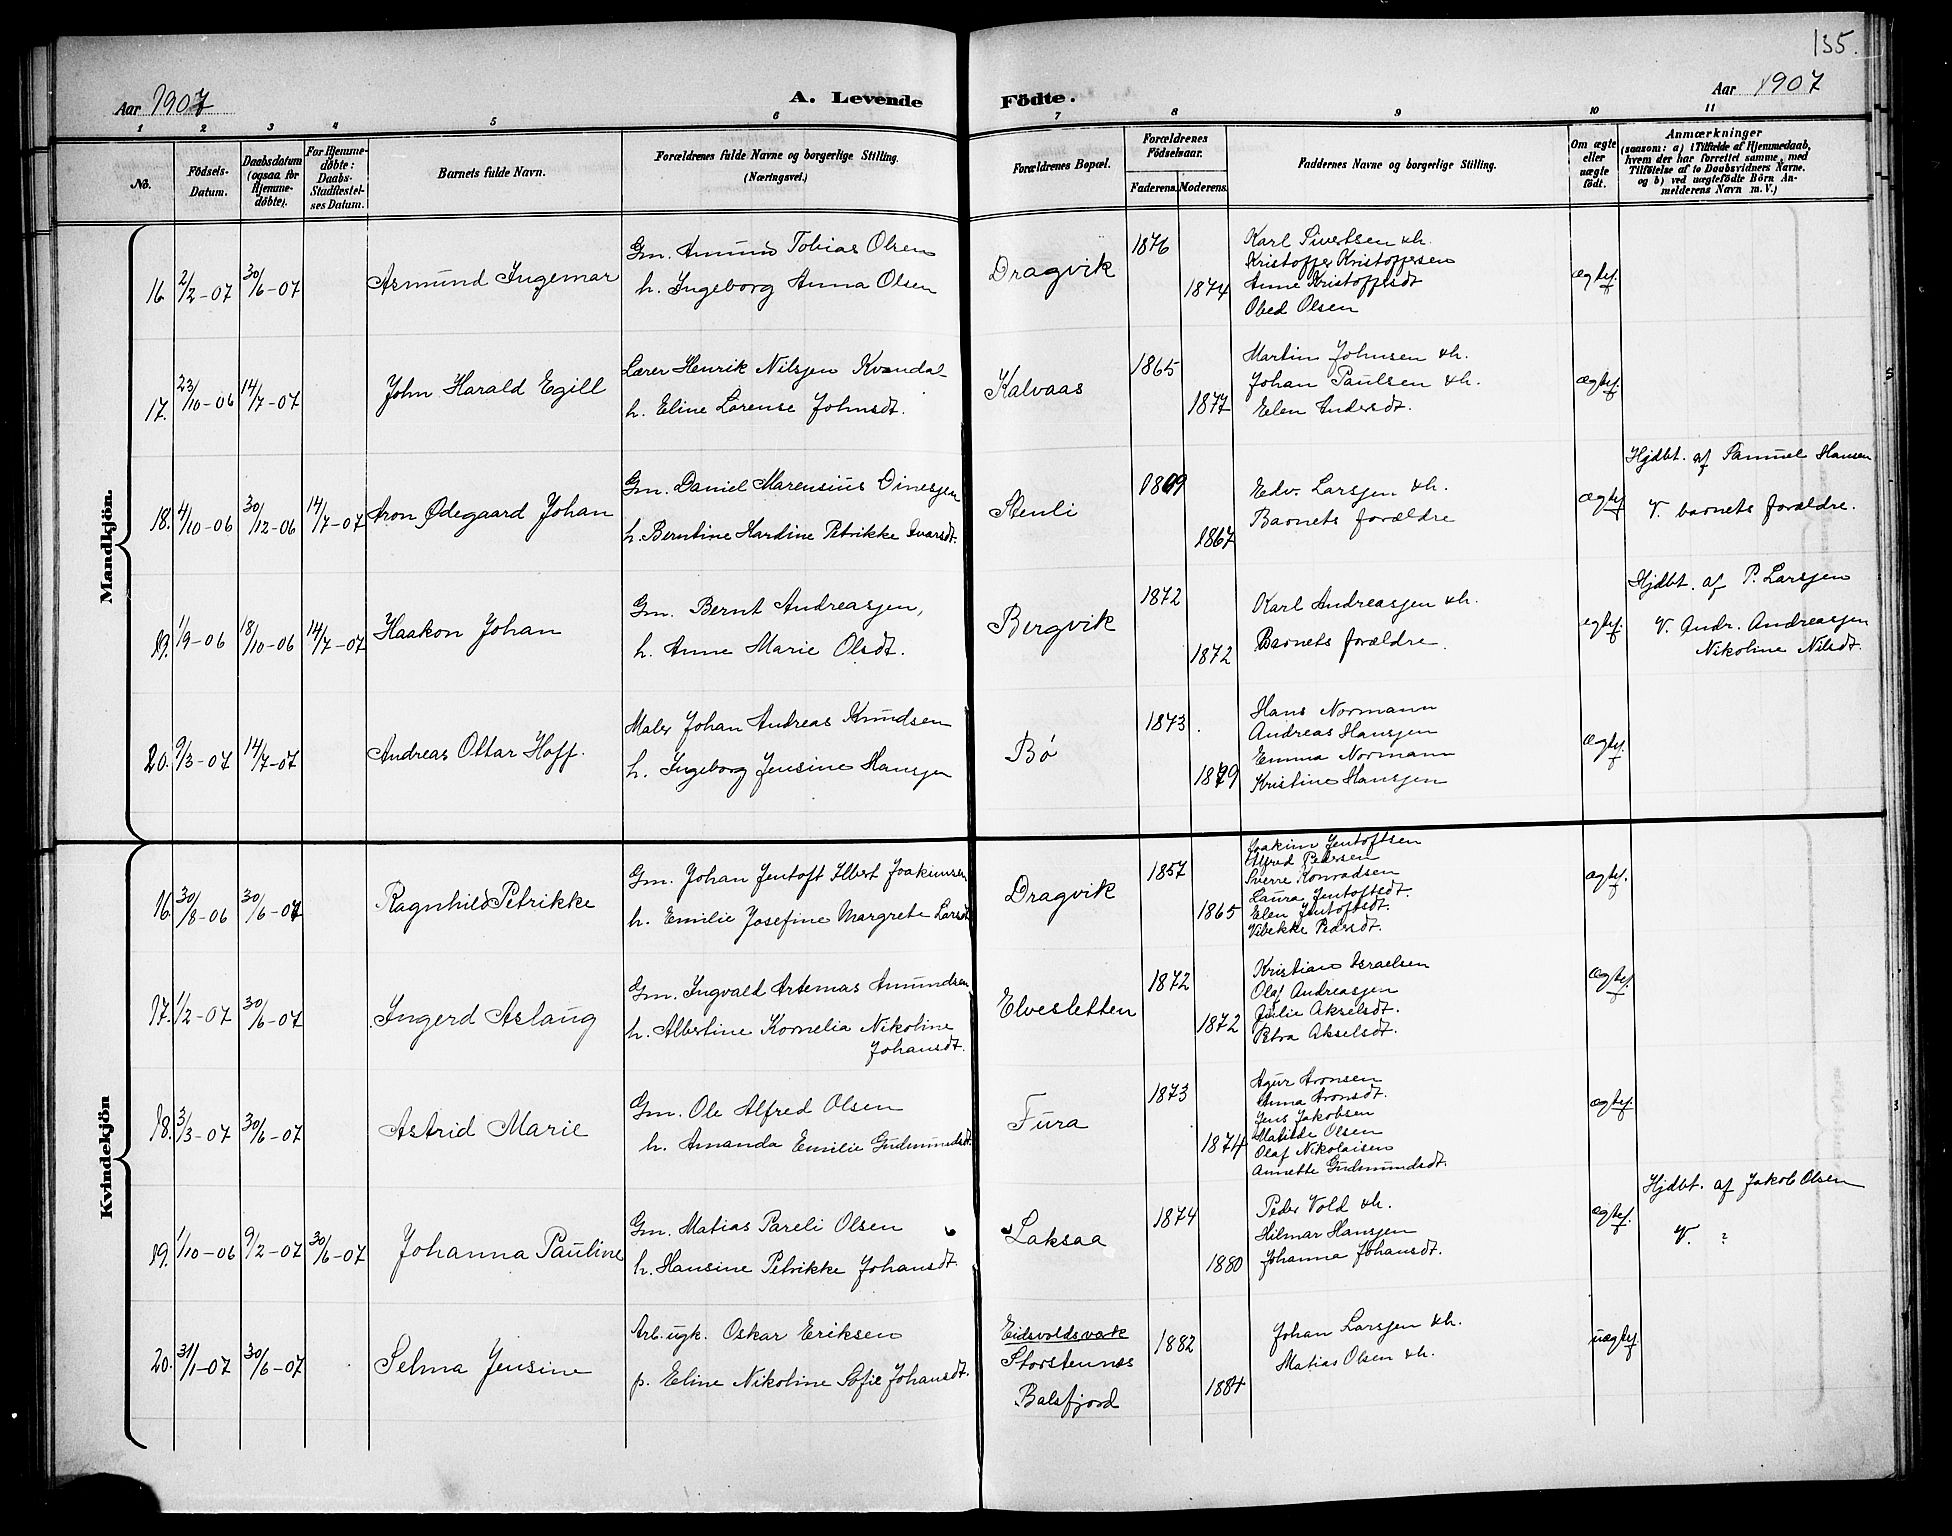 135.
Aar 1907
A. Levende Födte.
Aar 1907
1 2 3 4 5 6 7 8 9 10 11
No.
Födsels-Datum.
Daabsdatum (ogsaa for Hjemme-döbte).
For Hjemme-döbte: Daabs-Stadfæstel-ses Datum.
Barnets fulde Navn.
Forældrenes fulde Navne og borgerlige Stilling.
(Næringsvei.)
Forældrenes Bopæl.
Forældrenes Födselsaar.
Faderens. Moderens.
Faddernes Navne og borgerlige Stilling.
Om ægte eller uægte födt.
Anmærkninger
(saasom: a) i Tilfælde af Hjemmedaab,
hvem der har forrettet samme, med
Tilföielse af to Daabsvidners Navne.
og b) ved uægtefödte Börn An-
melderens Navn m. V.)
Mandkjön.
16. 2/2-07 30/6-07 Asmund Ingemar
Gm. Amund Tobias Olsen
h. Ingeborg Anna Olsen
Dragvik 1876 1874
Karl Sivertsen &h.
Kristoffer Kristoffersen
Anne Kristoffersdt
Obed Olsen
ægtef.
17. 23/10-06 14/7-07 John Harald Egill
Lærer Henrik Nilsjen Kvandal
h. Eline Lorense Johnsdt.
Kalvaas 1865 1877
Martin Johnsen &h.
Johan Paulsen &h.
Elen Andersdt.
ægtef.
18. 4/10-06 30/12-06 14/7-07 Aron Ødegaard Johan
Gm. Daniel Marensius Dinesjen
h. Berntine Hardine Petrikke Ivarsdt.
Stenli 1869 1867
Edv. Larsjen &h.
Barnets forældre
ægtef
Hjdbt. af Samuel Hansen
V. barnets forældre.
19. 1/9-06 18/10-06 14/7-07 Haakon Johan
Gm. Bernt Andreasjen,
h. Anne Marie Olsdt.
Bergvik 1872 1872
Karl Andreasjen &h.
Barnets forældre.
ægtef.
Hjdbt. af P. Larsjen
V. Andr. Andreasjen
Nikoline Nilsdt.
20. 9/3-07 14/7-07 Andreas Ottar Hoff.
Maler Johan Andreas Knudsen
h. Ingeborg Jensine Hansjen
Bø 1873 1879
Hans Normann
Andreas Hansjen
Emma Normann
Kristine Hansjen
ægtef.
Kvindekjön
16. 30/8-06 30/6-07 Ragnhild Petrikke
Gm. Johan Jentoft Albert Joakimsen
h. Emilie Josefine Margrete Larsdt
Dragvik 1857 1865
Joakim Jentoftsen
Alfred Pedersen
Sverre Konradsen
Laura Jentoftsdt.
Elen Jentoftsdt.
Vibekke Pedersdt.
ægtef.
17. 1/2-07 30/6-07 Ingerd Aslaug
Gm. Ingvald Artemas Amundsen
h. Albertine Kornelia Nikoline
Johansdt.
Elvesletten 1872 1872
Kristian Israelsen
Olaf Andreasjen
Julie Akselsdt.
Petra Akselsdt.
ægtef.
18. 3/3-07 30/6-07 Astrid Marie
Gm. Ole Alfred Olsen
h. Amanda Emilie Gudmundsdt.
Fura 1873 1874
Agur Aronsen
Anna Aronsdt.
Jens Jakobsen
Matilde Olsen
Olaf Nikolaisen
Annette Gudmundsdt.
ægtef.
19. 1/10-06 9/2-07 30/6-07 Johanna Pauline
Gm. Matias Pareli Olsen
h. Hansine Petrikke Johansdt.
Laksaa 1874 1880
Peder Vold &h.
Hilmar Hansjen
Johanna Johansdt.
ægtef.
Hjdbt. af Jakob Olsen
V. ?
20. 31/1-07 30/6-07 Selma Jensine
Arb. ugk. Oskar Eriksen
p. Eline Nikoline Sofie Johansdt.
Eidsvoldsværk
Storstennes
Balsfjord
1882 1884
Johan Larsjen &h.
Matias Olsen &h.
uægtef